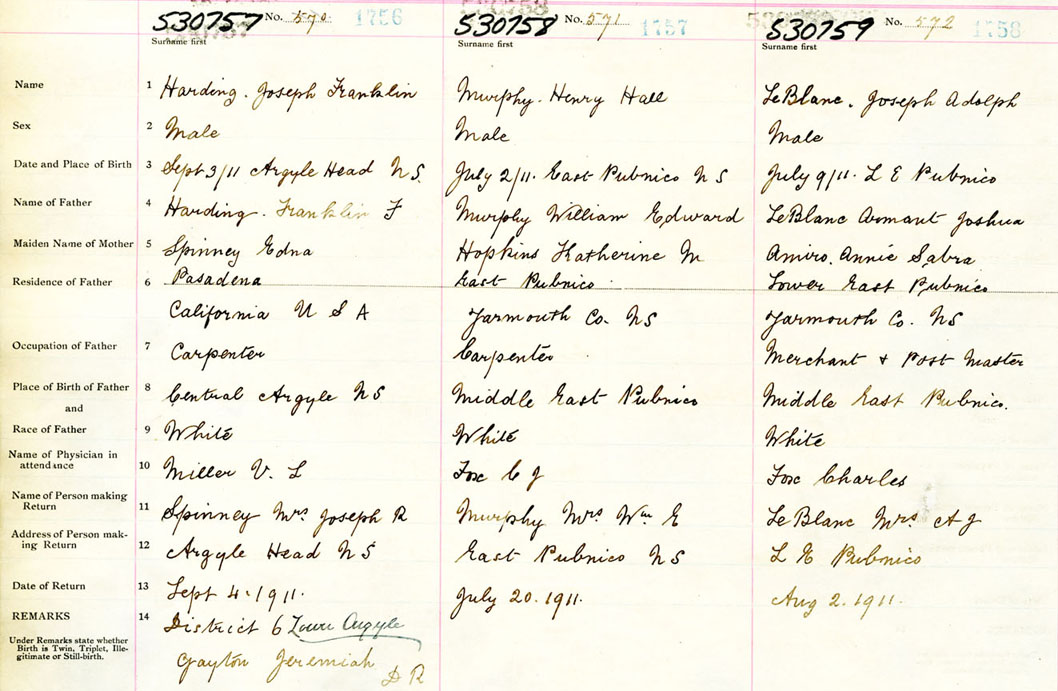 530757 No. 570 1756 530758 No. 571 1757 530759 No. 572 1758
Surname first Surname first Surname first
Name 1 Harding. Joseph Franklin Murphy. Henry Hall LeBlanc. Joseph Adolph
Sex 2 Male Male Male
Date and Place of Birth 3 Sept 3/11 Argyle Head N S. July 2/11. East Pubnico N S July 9/11. L E Pubnico
Name of Father 4 Harding. Franklin F Murphy William Edward LeBlanc Armant Joshua
Maiden Name of Mother 5 Spinney Edna Hopkins Katherine M Amiro. Annie Sabra
Residence of Father 6 Pasadena East Pubnico Lower East Pubnico
California U S A Yarmouth Co. NS Yarmouth Co. NS
Occupation of Father 7 Carpenter Carpenter Merchant + Post Master
Place of Birth of Father 8 Central Argyle NS Middle East Pubnico Middle East Pubnico.
and
Race of Father 9 White White White
Name of Physician in
attendance 10 Miller V. L Fox C J Fox Charles
Name of Person making
Return 11 Spinney Mrs Joseph R Murphy Mrs Wm E LeBlanc Mrs A J
Address of Person mak-
ing Return 12 Argyle Head NS East Pubnico NS L E Pubnico
Date of Return 13 Sept 4. 1911. July 20. 1911. Aug 2. 1911.
REMARKS 14 District 6 Argyle
Under Remarks state whether
Birth is Twin, Triplet, Ille-
gitimate or Still-birth.
Gayton Jeremiah D R